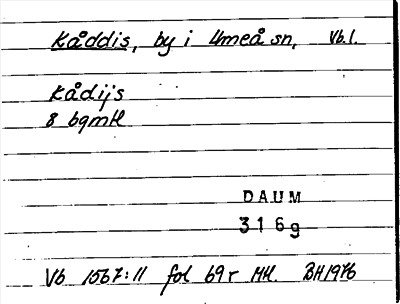 Kåddis, by i Umeå sn, Vb.l.
Kådijs
8 bgmtl
DAUM
316g
Vb 1567:11 fol 69r Mtl. BH1976